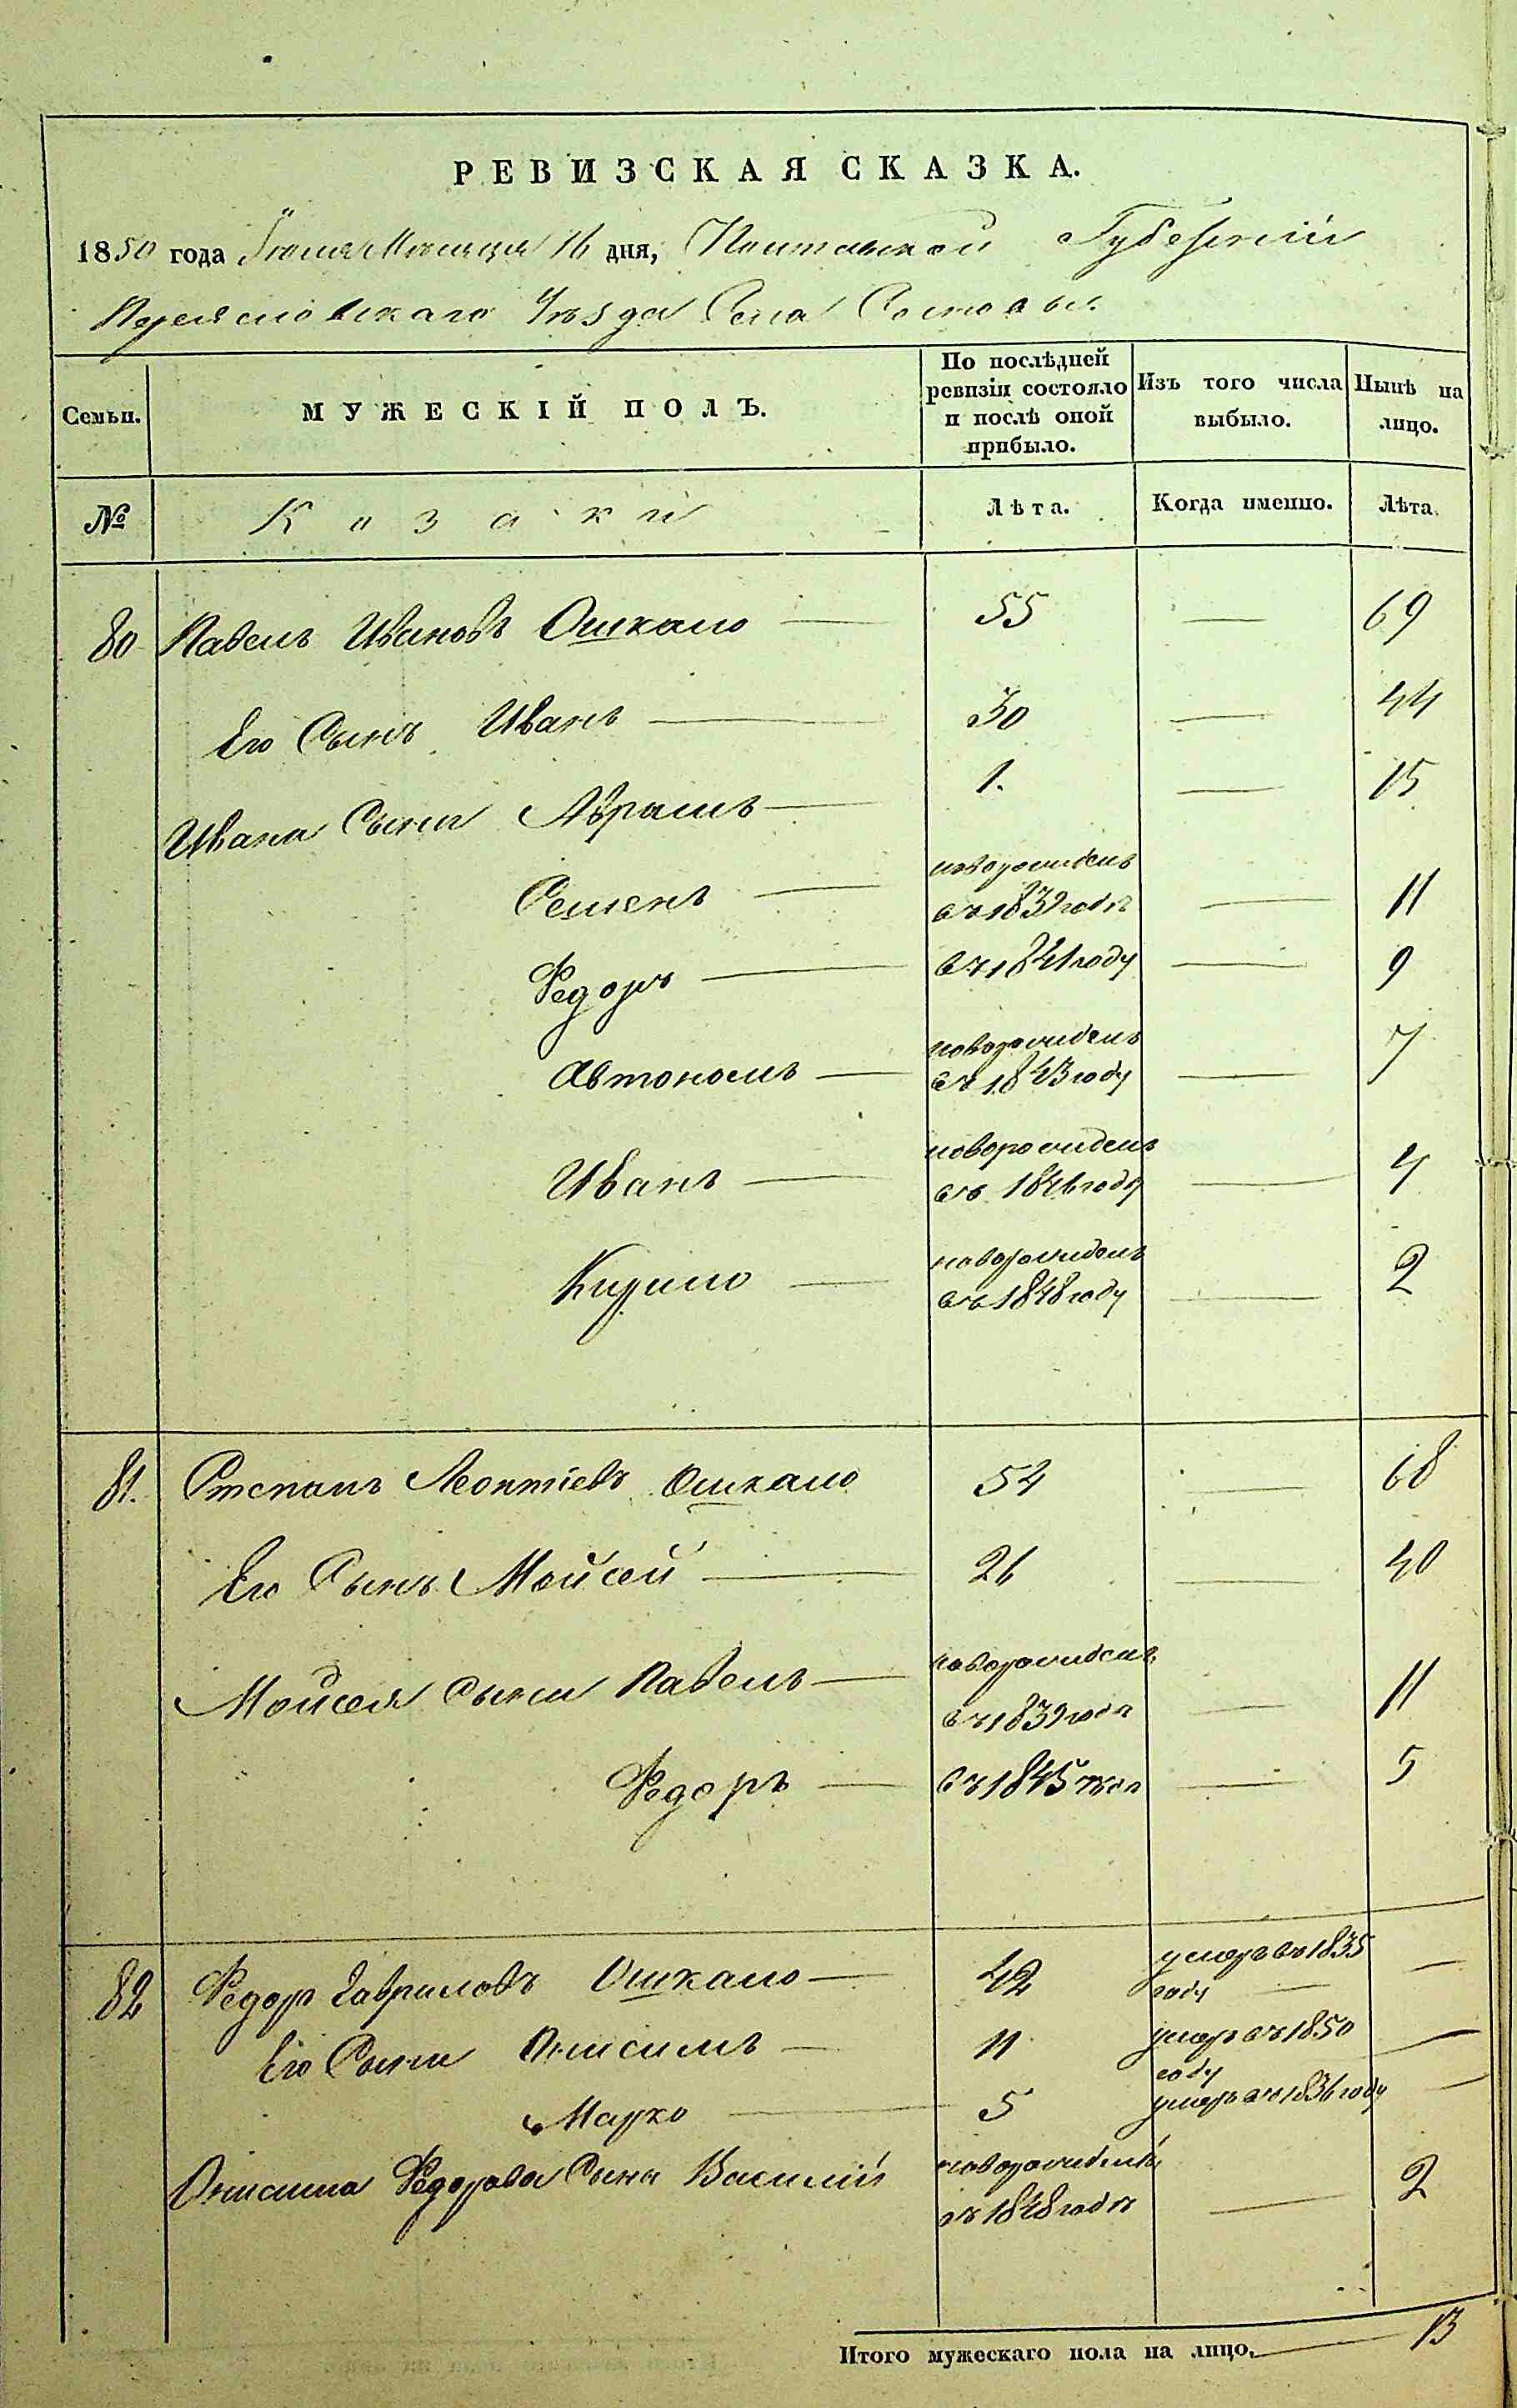 РЕВИЗСКАЯ СКАЗКА.
1850 года Іюня Месяца 16 дня, Полтавской Губерніи
Переясловскаго Уѣзда Села
Семьи.
МУЖЕСКІЙ ПОЛЪ.
По послѣдней
ревизіи состояло
и послѣ оной
прибыло.
Изъ того числа
выбыло.
Нынѣ на
лицо.
№
Козаки
Лѣта.
Когда именно.
Лѣта.
80 Павелъ Ивановъ Ошкало — 55 — 69
Его Сынъ Иванъ — 30 — 44
Ивана Сыны Абрамъ — 1. — 15
новорожденъ
Семенъ — въ 1839 годѣ — 11
Федоръ — въ 1841 году — 9
новорожденъ
Автономъ — въ 1843 году — 7
новорожденъ
Иванъ — въ 1846 годѣ — 4
новорожденъ
Кирило — въ 1848 году — 2
81. Степанъ Леонтіевъ Ошкало 54 — 68
Его Сынъ Мойсей — 26 — 40
новорожденъ
Мойсея Сыны Павелъ — въ 1839 годѣ — 11
Федоръ — въ 1845 годѣ — 5
82 Федоръ Гавриловъ Ошкало — 42 умеръ въ 1835 —
году —
Его Сыны Онисимъ — 11 умеръ въ 1850 —
году
Марко — 5 умеръ въ 1836 году —
Онисима Федорова Сынъ Василій новорожденъ
въ 1848 годѣ — 2
Итого мужескаго пола на лицо. — 13